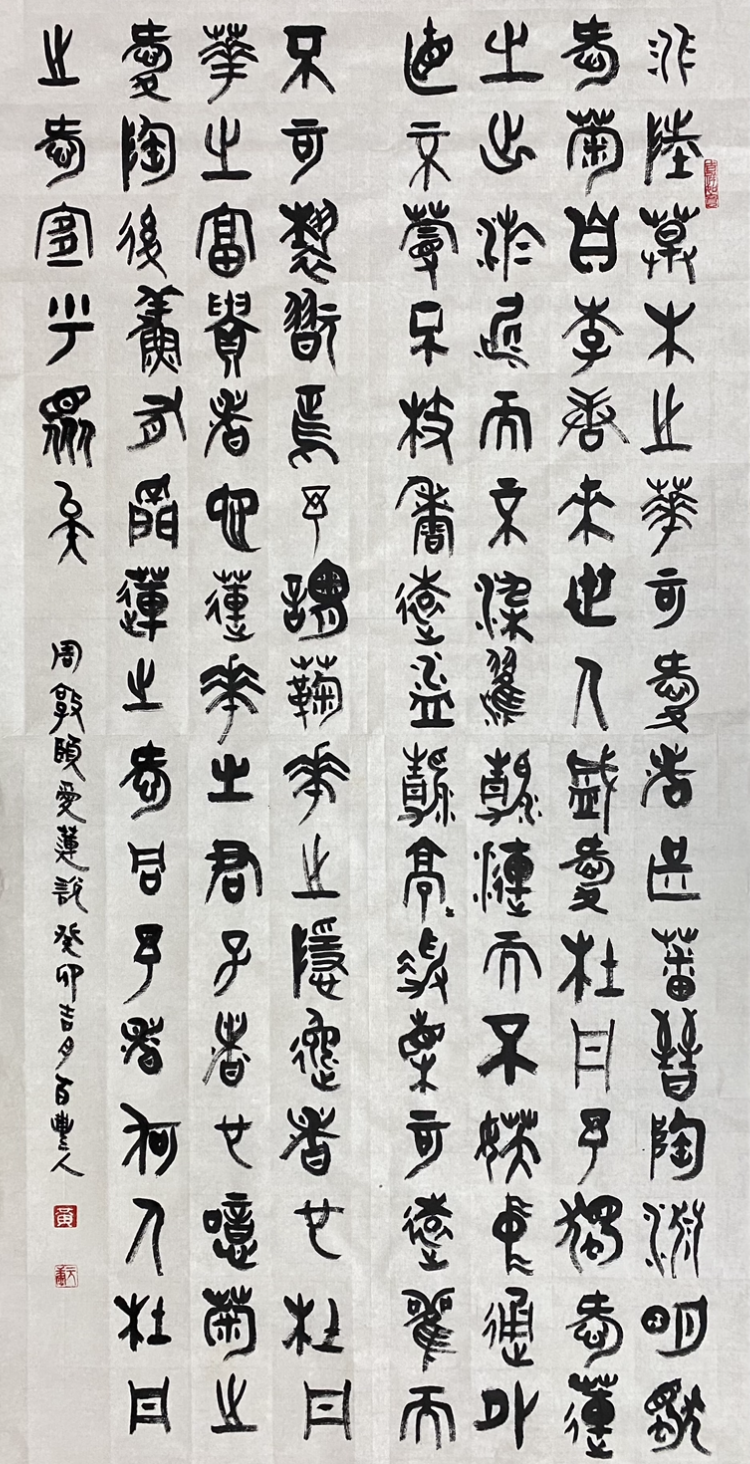 水陸草木之華可愛者甚蕃晉陶淵明獨
愛菊自李唐來世人盛愛牡丹予獨愛蓮
之出淤泥而不染濯清漣而不妖中通外
直不蔓不枝香遠益清亭亭淨植可遠觀而
不可褻翫焉予謂菊華之隱逸者也牡丹
華之富貴者也蓮華之君子者也噫菊之
愛陶後鮮有聞蓮之愛同予者何人牡丹
之愛宜乎眾矣
周敦頤愛蓮說癸卯吉月百豐人